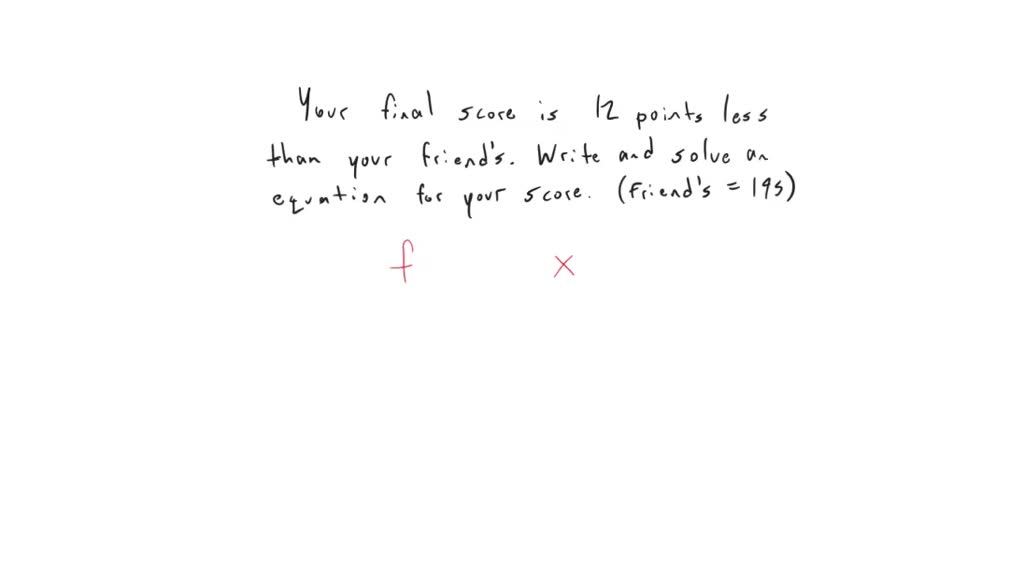 Your final score is 12 points less
than your friend's. Write and solve an
equation for your score. (Friend's = 195)
f x